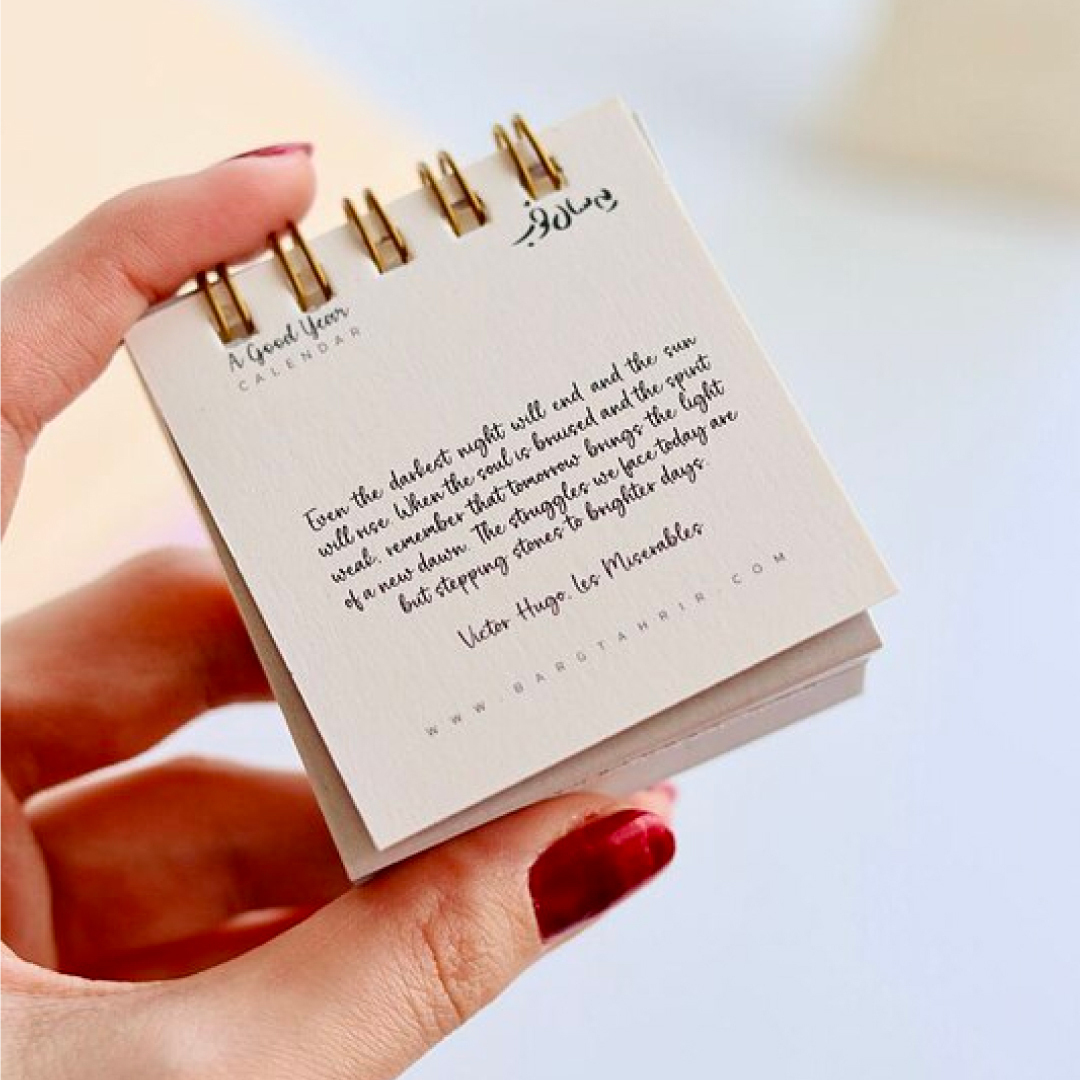 یه سال خوب
A Good Year
CALENDAR
Even the darkest night will end and the sun
will rise. When the soul is bruised and the spirit
weak, remember that tomorrow brings the light
of a new dawn. The struggles we face today are
but stepping stones to brighter days
Victor Hugo, Les Miserables
WWW.BARGTAHRIR.COM